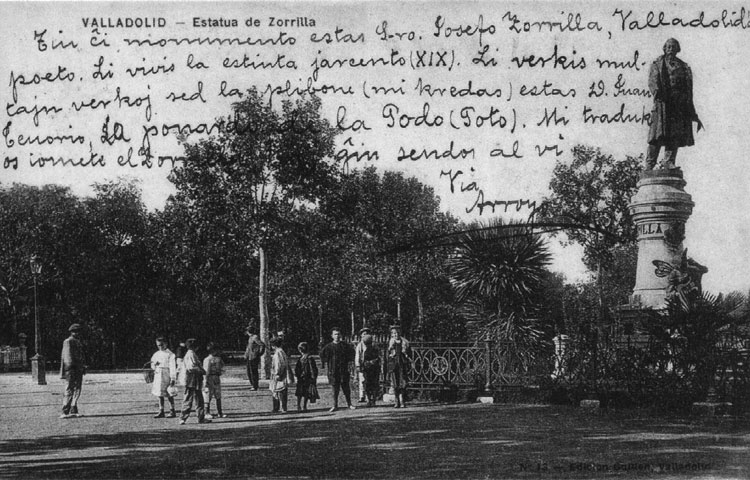 VALLADOLID – Estatua de Zorrilla
Tiu ĉi monumento estas S-ro. Josefo Zorrilla, Valladolida
poeto. Li vivis la estinta jarcento (XIX). Li verkis mul-
tajn verkoj sed la plibone (mi kredas) estas D. Juan
Tenorio, la la Podo (Foto). Mi traduk
os iomete el Zorrilla ĝin sendos al vi
Via
Arroyo
ILLA
Nº 13 – Edicion Guillén, Valladolid